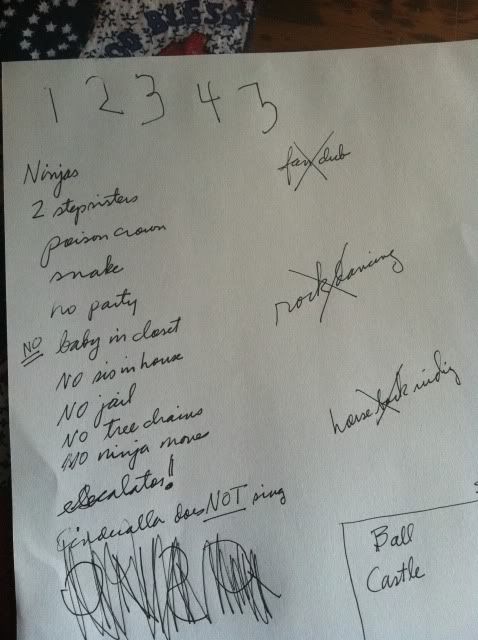 OR BLESS
1 2 3 4 5
Ninjas
2 stepsisters
poison crown
snake
no party
NO baby in closet
NO sis in house
NO jail
NO tree chains
NO ninja moves
escalator!
Cinderalla does NOT sing
fan club
rock dancing
horse back riding
Ball
Castle